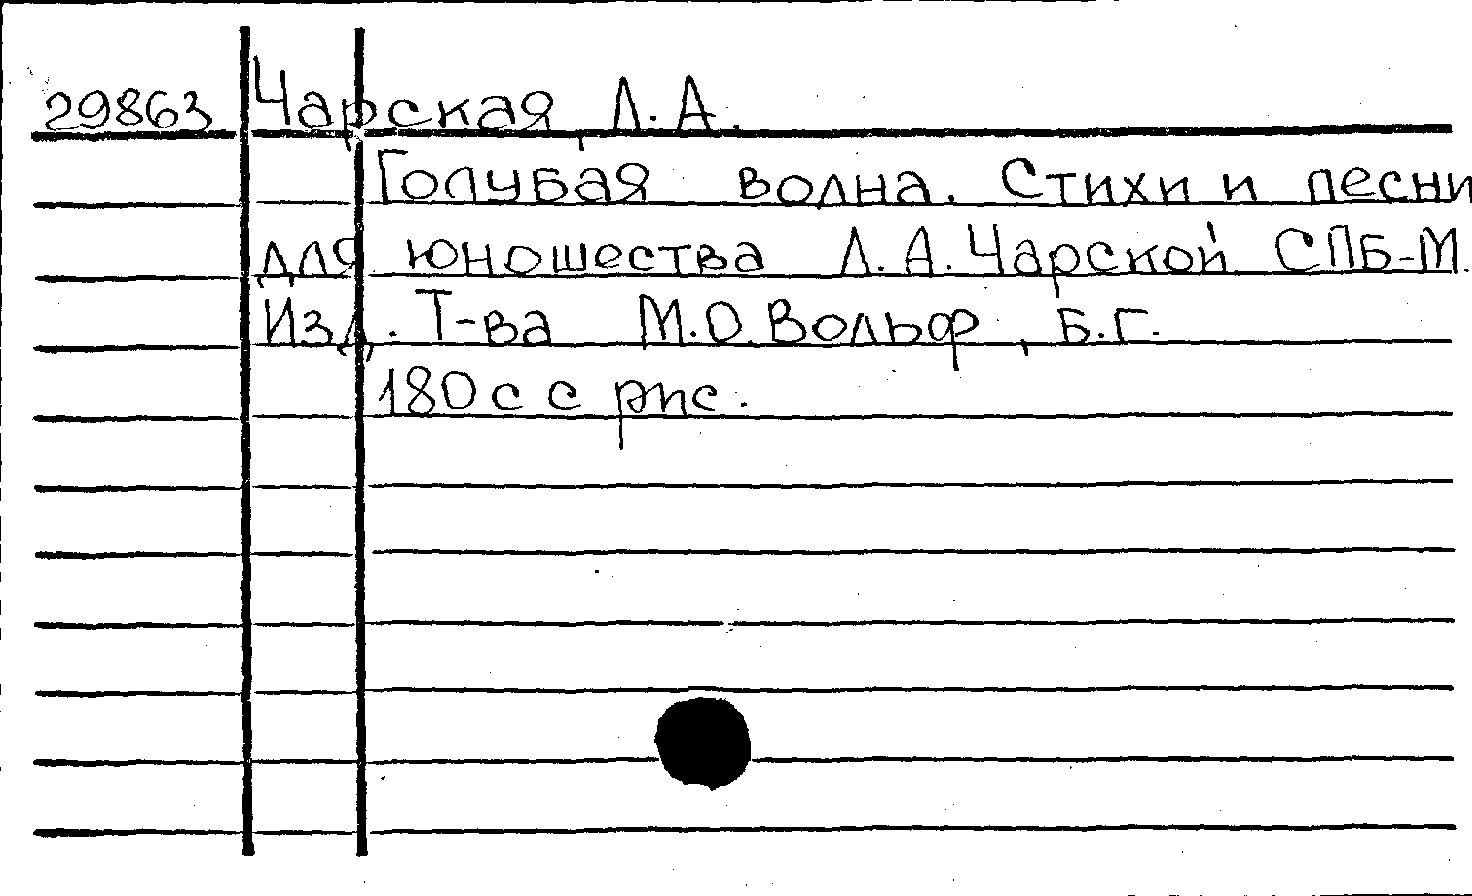 29863 Чарская, Л. А.
Голубая волна. Стихи и песни
для юношества Л. А. Чарской. СПБ-М.
Изд. Т-ва М.О. Вольф, Б.Г.
180 с с рис.